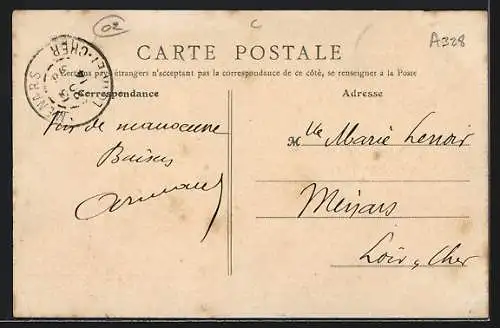 02
C
A328
CARTE POSTALE
Certains pays étrangers n'acceptant pas la correspondance de ce côté, se renseigner à la Poste
Correspondance
Adresse
MENARS
LOIR-ET-CHER
fin de manoeuvre
Baisers
Armand
Mlle Marie Lenoir
Menars
Loir & Cher